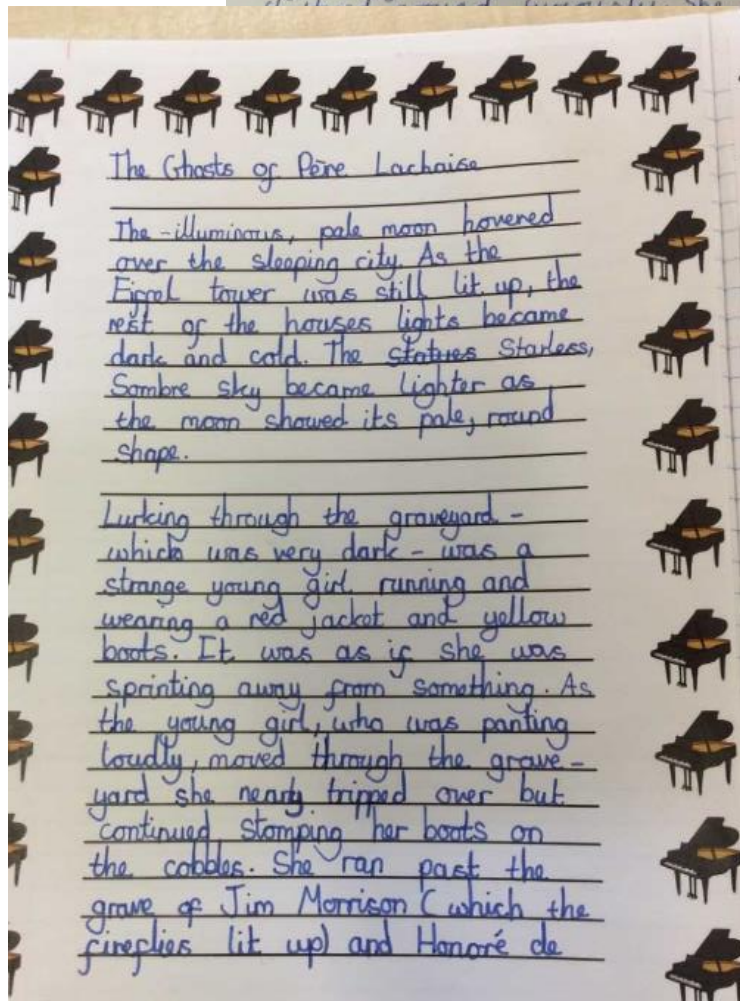 The Ghosts of Père Lachaise
The -illuminous, pale moon hovered
over the sleeping city. As the
Eiffel tower was still lit up, the
rest of the houses lights became
dark and cold. The statues Starless,
Sombre sky became lighter as
the moon showed its pale, round
shape.
Lurking through the graveyard -
which was very dark - was a
strange young girl running and
wearing a red jacket and yellow
boots. It was as if she was
sprinting away from something. As
the young girl, who was panting
loudly, moved through the grave-
yard she nearly tripped over but
continued stomping her boots on
the cobbles. She ran past the
grave of Jim Morrison (which the
fireflies lit up) and Honoré de